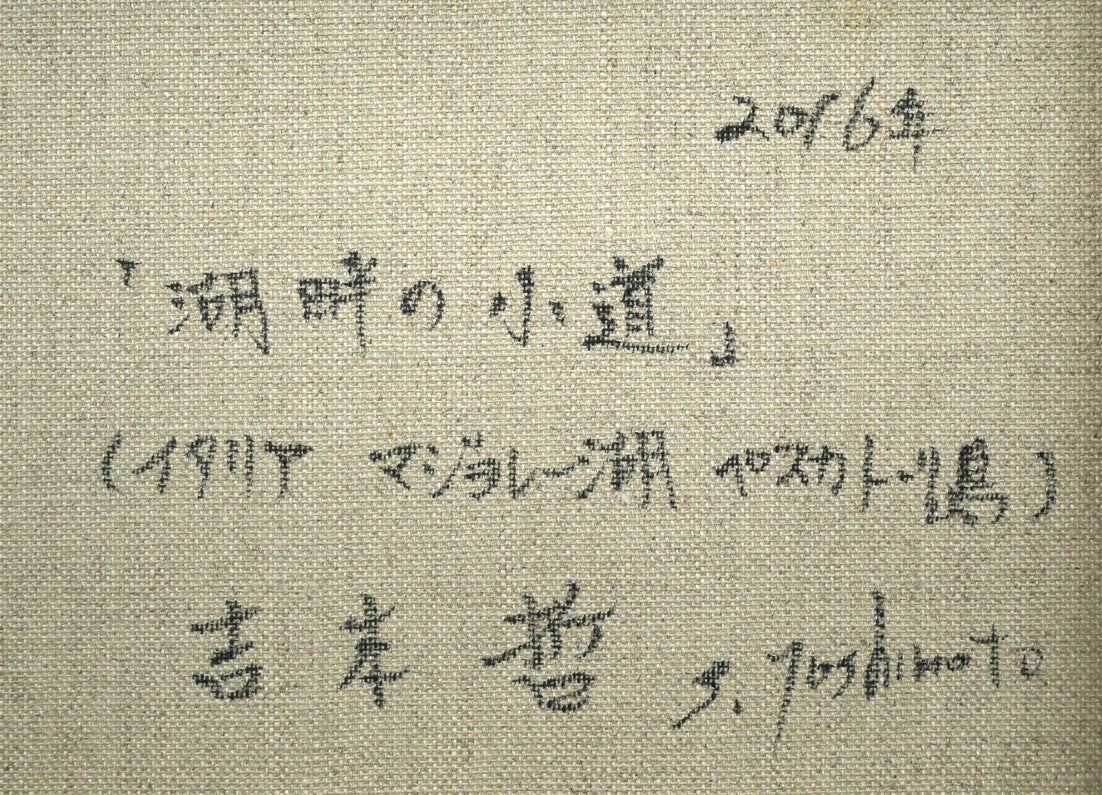 2016年
「湖畔の小道」
(イタリア マジョレー湖 ペスカトーリ島)
吉本 哲 S. Yoshimoto